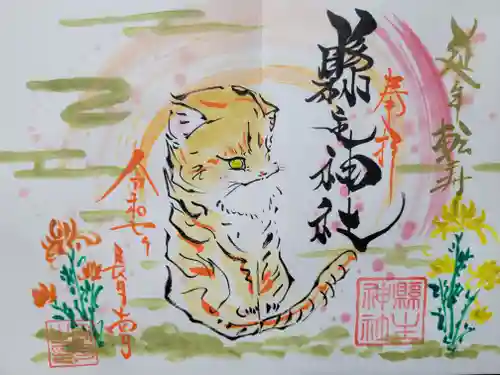 延年転寿
奉拝
縣主神社
令和七年
長月吉日
縣主
神社